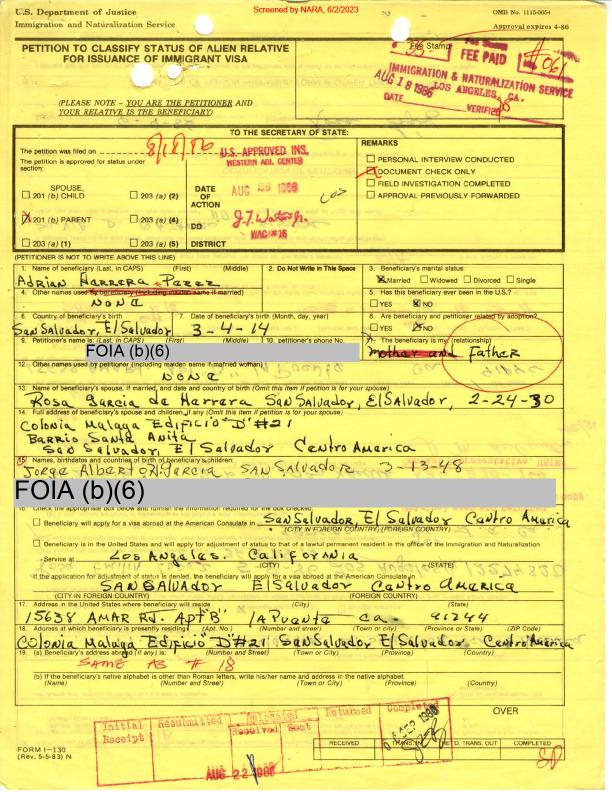 Screened by NARA, 6/2/2023
U.S. Department of Justice
Immigration and Naturalization Service
OMB No. 1115-0054
Approval expires 4-86
PETITION TO CLASSIFY STATUS OF ALIEN RELATIVE
FOR ISSUANCE OF IMMIGRANT VISA
(PLEASE NOTE - YOU ARE THE PETITIONER AND
YOUR RELATIVE IS THE BENEFICIARY)
Fee Stamp
FEE PAID
#061
IMMIGRATION & NATURALIZATION SERVICE
AUG 18 1986
LOS ANGELES, CA.
DATE
VERIFIED
TO THE SECRETARY OF STATE:
The petition was filed on 8/18/86
The petition is approved for status under
section:
SPOUSE,
201 (b) CHILD
203 (a) (2)
201 (b) PARENT
203 (a) (4)
203 (a) (1)
203 (a) (5)
U.S. APPROVED INS.
WESTERN ADJ. CENTER
DATE
OF
ACTION
AUG 26 1986
DD
WAC #16
DISTRICT
REMARKS
PERSONAL INTERVIEW CONDUCTED
DOCUMENT CHECK ONLY
FIELD INVESTIGATION COMPLETED
APPROVAL PREVIOUSLY FORWARDED
(PETITIONER IS NOT TO WRITE ABOVE THIS LINE)
1. Name of beneficiary (Last, in CAPS) (First) (Middle)
Adrian Herrera Perez
2. Do Not Write in This Space
3. Beneficiary's marital status:
Married Widowed Divorced Single
4. Other names used by beneficiary (including maiden name if married)
NONE
5. Has this beneficiary ever been in the U.S.?
YES NO
6. Country of beneficiary's birth
San Salvador, El Salvador
7. Date of beneficiary's birth (Month, day, year)
3-4-14
8. Are beneficiary and petitioner related by adoption?
YES NO
9. Petitioner's name is: (Last, in CAPS) (First) (Middle)
10. petitioner's phone No.
FOIA (b)(6)
11. The beneficiary is my (relationship)
mother and Father
12. Other names used by petitioner (including maiden name if married woman)
NONE
13. Name of beneficiary's spouse, if married, and date and country of birth (Omit this item if petition is for your spouse)
Rosa Garcia de Herrera San Salvador, El Salvador, 2-24-30
14. Full address of beneficiary's spouse and children, if any (Omit this item if petition is for your spouse)
Colonia Malaga Edificio "D" #21
Barrio Santa Anita
San Salvador, El Salvador Centro America
15. Names, birthdates and countries of birth of beneficiary's children:
Jorge Alberto H. Garcia San Salvador 3-13-48
FOIA (b)(6)
16. Check the appropriate box below and furnish the information required for the box checked:
Beneficiary will apply for a visa abroad at the American Consulate in San Salvador El Salvador Centro America
(CITY IN FOREIGN COUNTRY) (FOREIGN COUNTRY)
Beneficiary is in the United States and will apply for adjustment of status to that of a lawful permanent resident in the office of the Immigration and Naturalization
Service at Los Angeles. California
(CITY) (STATE)
If the application for adjustment of status is denied, the beneficiary will apply for a visa abroad at the American Consulate in
SAN SALVADOR El Salvador Centro America
(CITY IN FOREIGN COUNTRY) (FOREIGN COUNTRY)
17. Address in the United States where beneficiary will reside (City) (State)
15638 AMAR Rd. Apt "B" la Puente ca- 91744
18. Address at which beneficiary is presently residing (Apt. No.) (Number and street) (Town or city) (Province or State) (ZIP Code)
Colonia Malaga Edificio "D" #21 San Salvador El Salvador, Centro America
19. (a) Beneficiary's address abroad (if any) is: (Number and Street) (Town or City) (Province) (Country)
SAME AS # 18
(b) If the beneficiary's native alphabet is other than Roman letters, write his/her name and address in the native alphabet:
(Name) (Number and Street) (Town or City) (Province) (Country)
OVER
Initial
Receipt
Resubmitted
Relocated
Received Sent
Returned
Completed
AUG 22 1986
FORM I-130
(Rev. 5-5-83) N
RECEIVED
TRANS. IN
RET'D. TRANS. OUT
COMPLETED